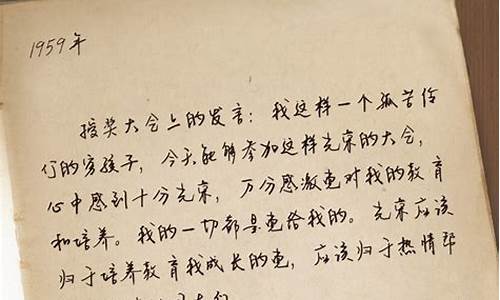 1959年
授奖大会上的发言：我这样一个孤苦伶
仃的穷孩子，今天能够参加这样光荣的大会，
心中感到十分光荣，万分感激党对我的教育
和培养。我的一切都是党给我的。光荣应该
归于培养教育我成长的党，应该归于热情帮